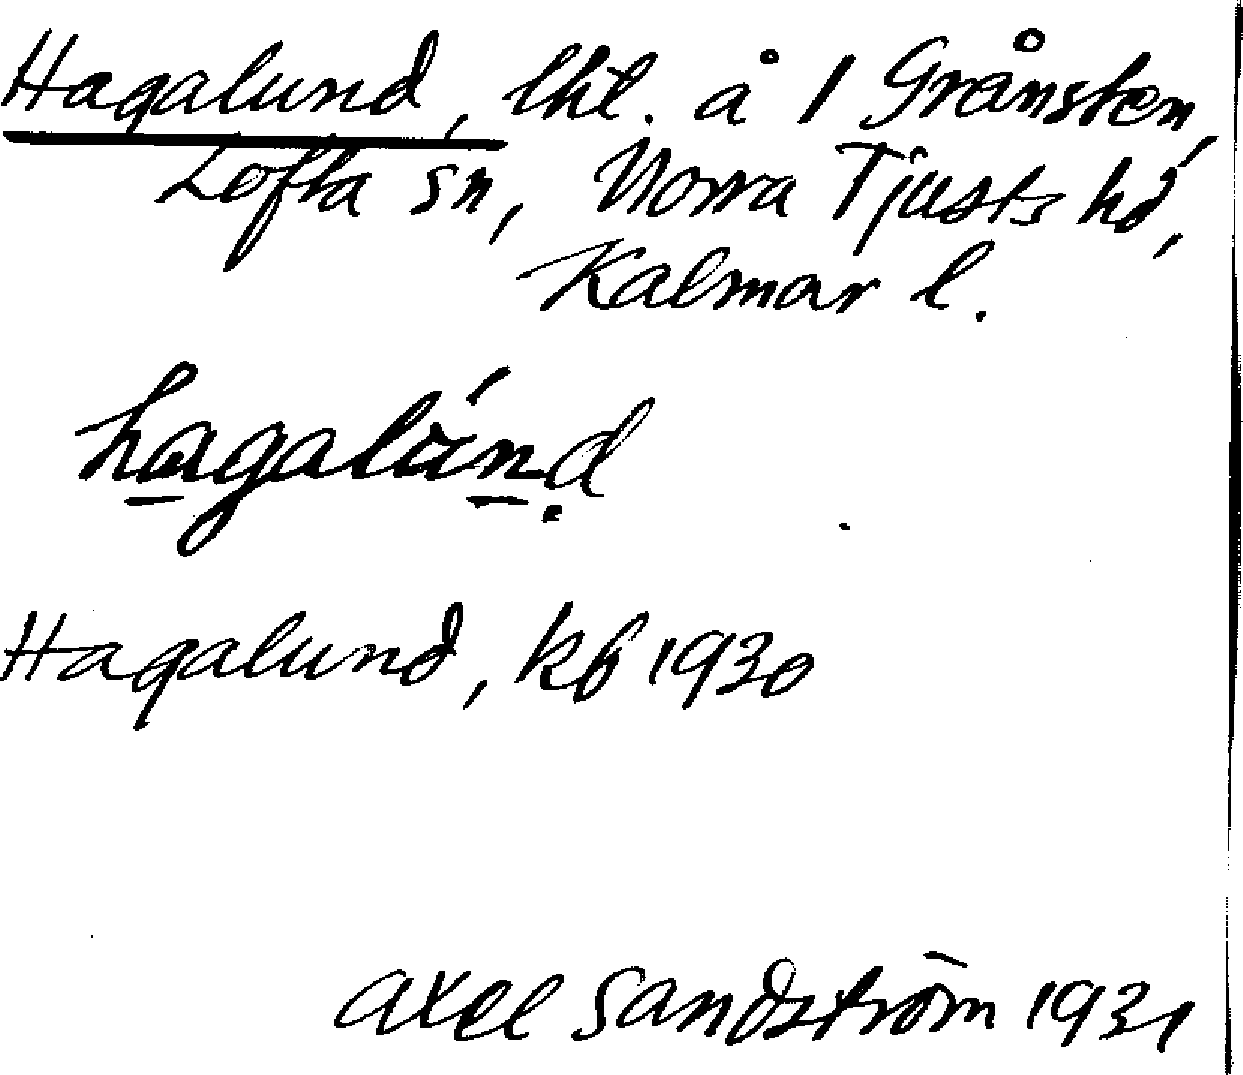 Hagalund, lht. å 1 Grånsten,
Lofta sn, Norra Tjusts hd,
Kalmar l.
hagalúnd
Hagalund, kb 1930
Axel Sandström 1931